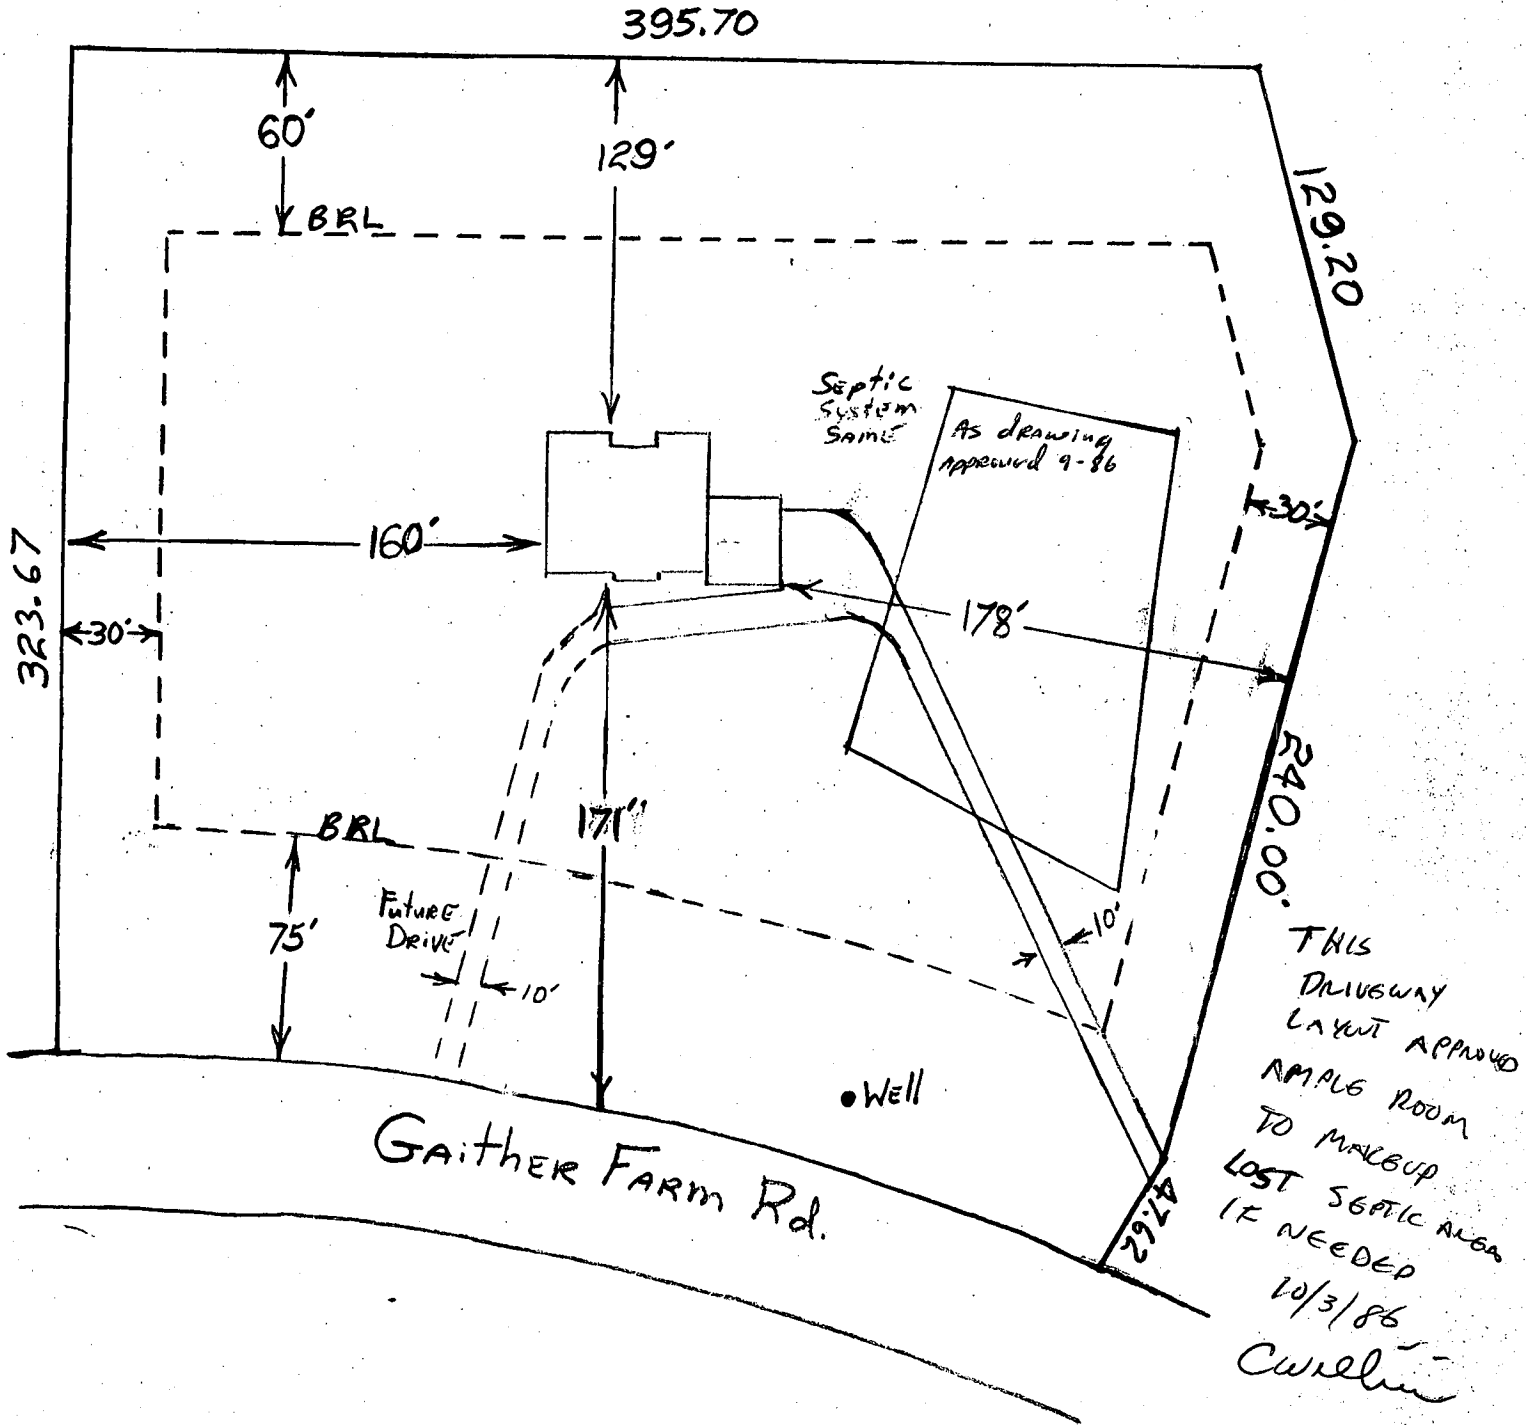 395.70
60'
129'
129.20
BRL
Septic
System
SAME
As drawing
Approved 9-86
30'
160'
323.67
30'
178'
171'
240.00'
BRL
Future
Drive
75'
10'
10'
Well
Gaither Farm Rd.
47.62
THIS
DRIVEWAY
LAYOUT APPROVED
AMPLE ROOM
TO MAKEUP
LOST SEPTIC AREA
IF NEEDED
10/3/86